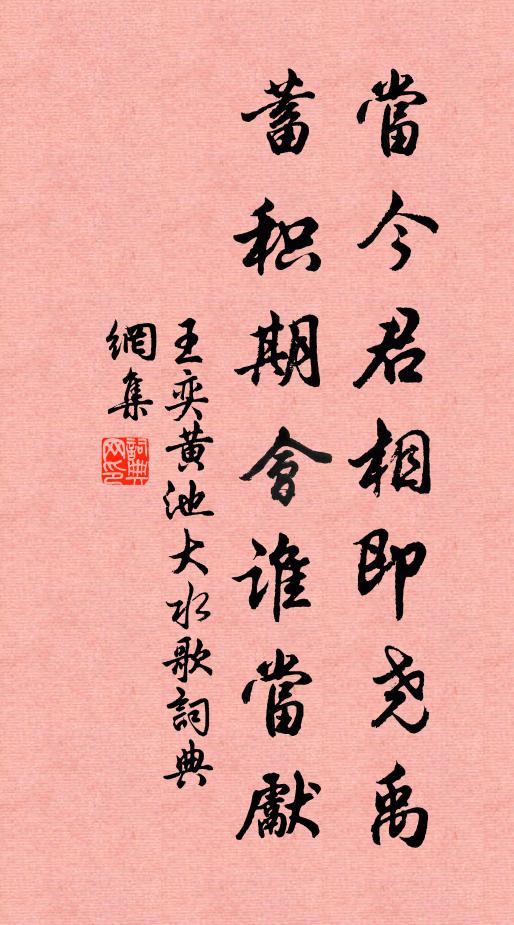 當今君相即尧禹
蓄积期會谁當獻
王奕黄池大水歌詞典
網集
詞典
网印